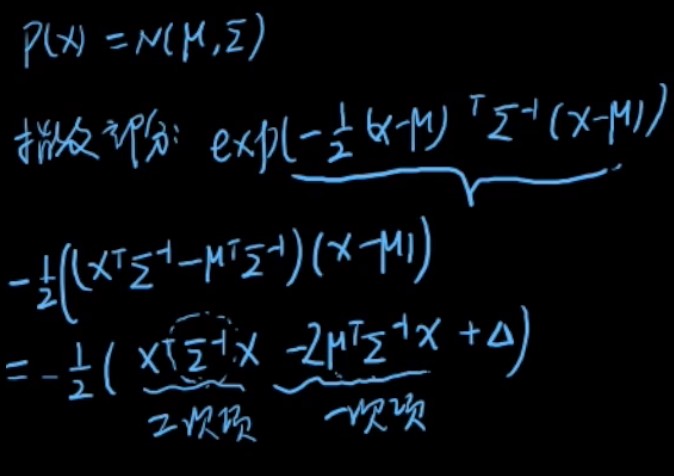 P(x) = N(μ, Σ)
指数部分: exp(-½(x-μ)ᵀΣ⁻¹(x-μ))
-½((xᵀΣ⁻¹-μᵀΣ⁻¹)(x-μ))
= -½(xᵀΣ⁻¹x -2μᵀΣ⁻¹x +Δ)
二次项 一次项